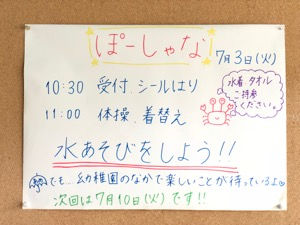 ぽーしゃな
7月3日(火)
10:30 受付.シールはり
11:00 体操.着替え
水着.タオル
ご持参
ください。
水あそびをしよう!!
でも...幼稚園のなかで楽しいことが待っているよ♡
次回は7月10日(火)です!!